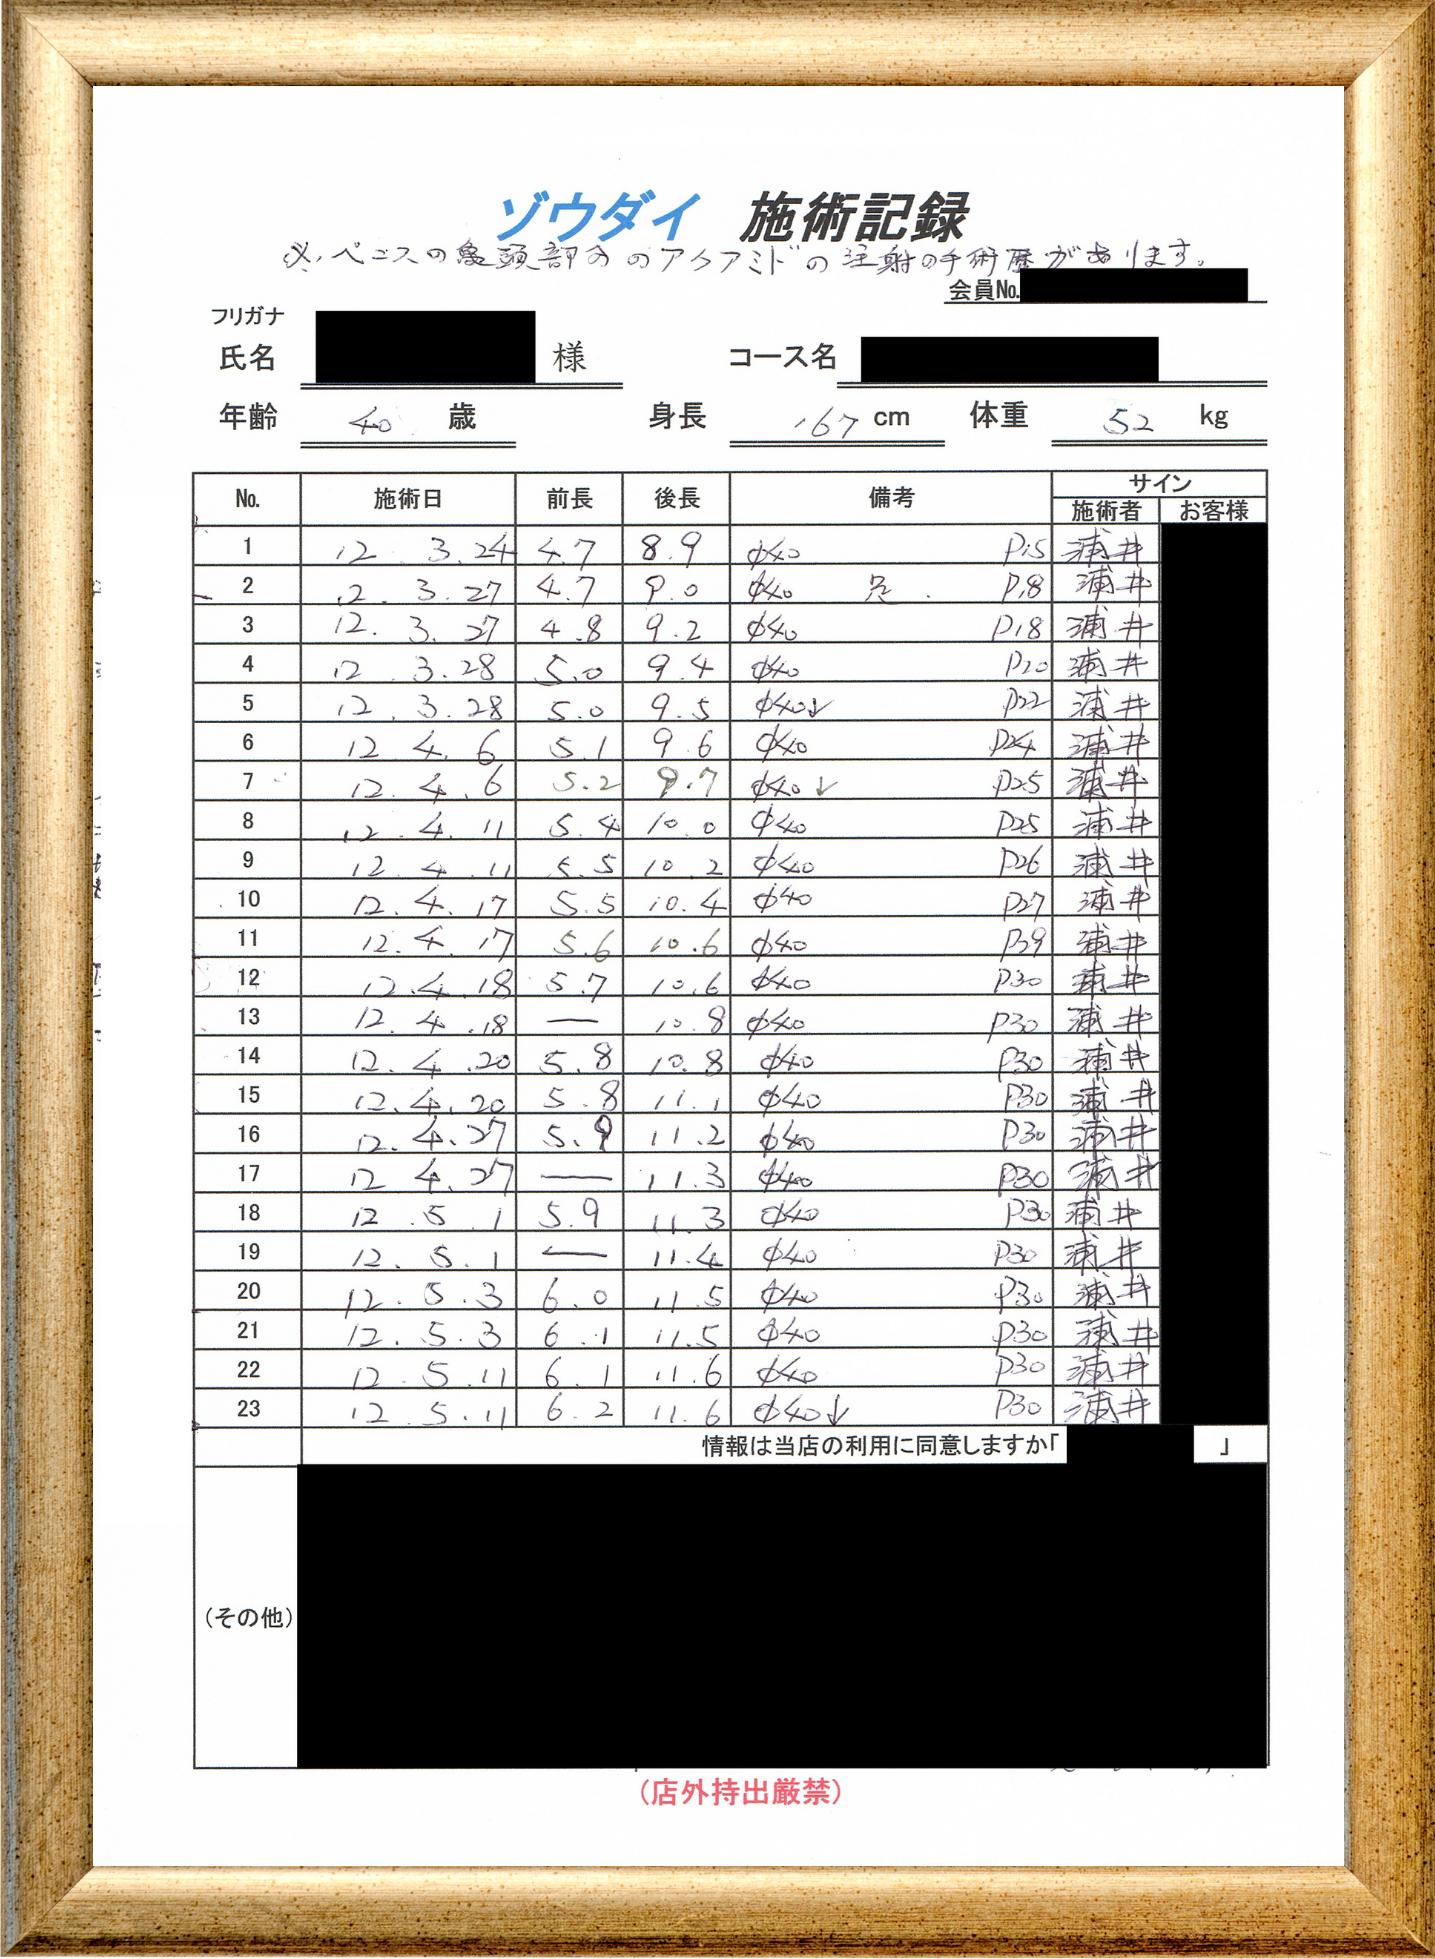 ゾウダイ 施術記録
※ペニスの亀頭部分のアクアミドの注射の手術歴があります。
会員No.
フリガナ
氏名 様 コース名
年齢 40 歳 身長 167 cm 体重 52 kg
No. 施術日 前長 後長 備考 サイン
施術者 お客様
1 12. 3.24 4.7 8.9 φ40 P15 浦井
2 12. 3.27 4.7 9.0 φ40 P18 浦井
3 12. 3. 27 4.8 9.2 φ40 P18 浦井
4 12 3.28 5.0 9.4 φ40 P20 浦井
5 12. 3.28 5.0 9.5 φ40↓ P22 浦井
6 12 4. 6 5.1 9.6 φ40 P24 浦井
7 12. 4. 6 5.2 9.7 φ40↓ P25 浦井
8 12. 4. 11 5.4 10.0 φ40 P25 浦井
9 12. 4. 11 5.5 10.2 φ40 P26 浦井
10 12. 4. 17 5.5 10.4 φ40 P27 浦井
11 12. 4. 17 5.6 10.6 φ40 P29 浦井
12 12.4.18 5.7 10.6 φ40 P30 浦井
13 12. 4.18 — 10.8 φ40 P30 浦井
14 12. 4.20 5.8 10.8 φ40 P30 浦井
15 12.4.20 5.8 11.1 φ40 P30 浦井
16 12.4.27 5.9 11.2 φ40 P30 浦井
17 12 4.27 — 11.3 φ40 P30 浦井
18 12. 5. 1 5.9 11.3 φ40 P30 浦井
19 12. 5. 1 — 11.4 φ40 P30 浦井
20 12. 5.3 6.0 11.5 φ40 P30 浦井
21 12. 5.3 6.1 11.5 φ40 P30 浦井
22 12. 5.11 6.1 11.6 φ40 P30 浦井
23 12. 5.11 6.2 11.6 φ40↓ P30 浦井
情報は当店の利用に同意しますか「 」
(その他)
(店外持出厳禁)